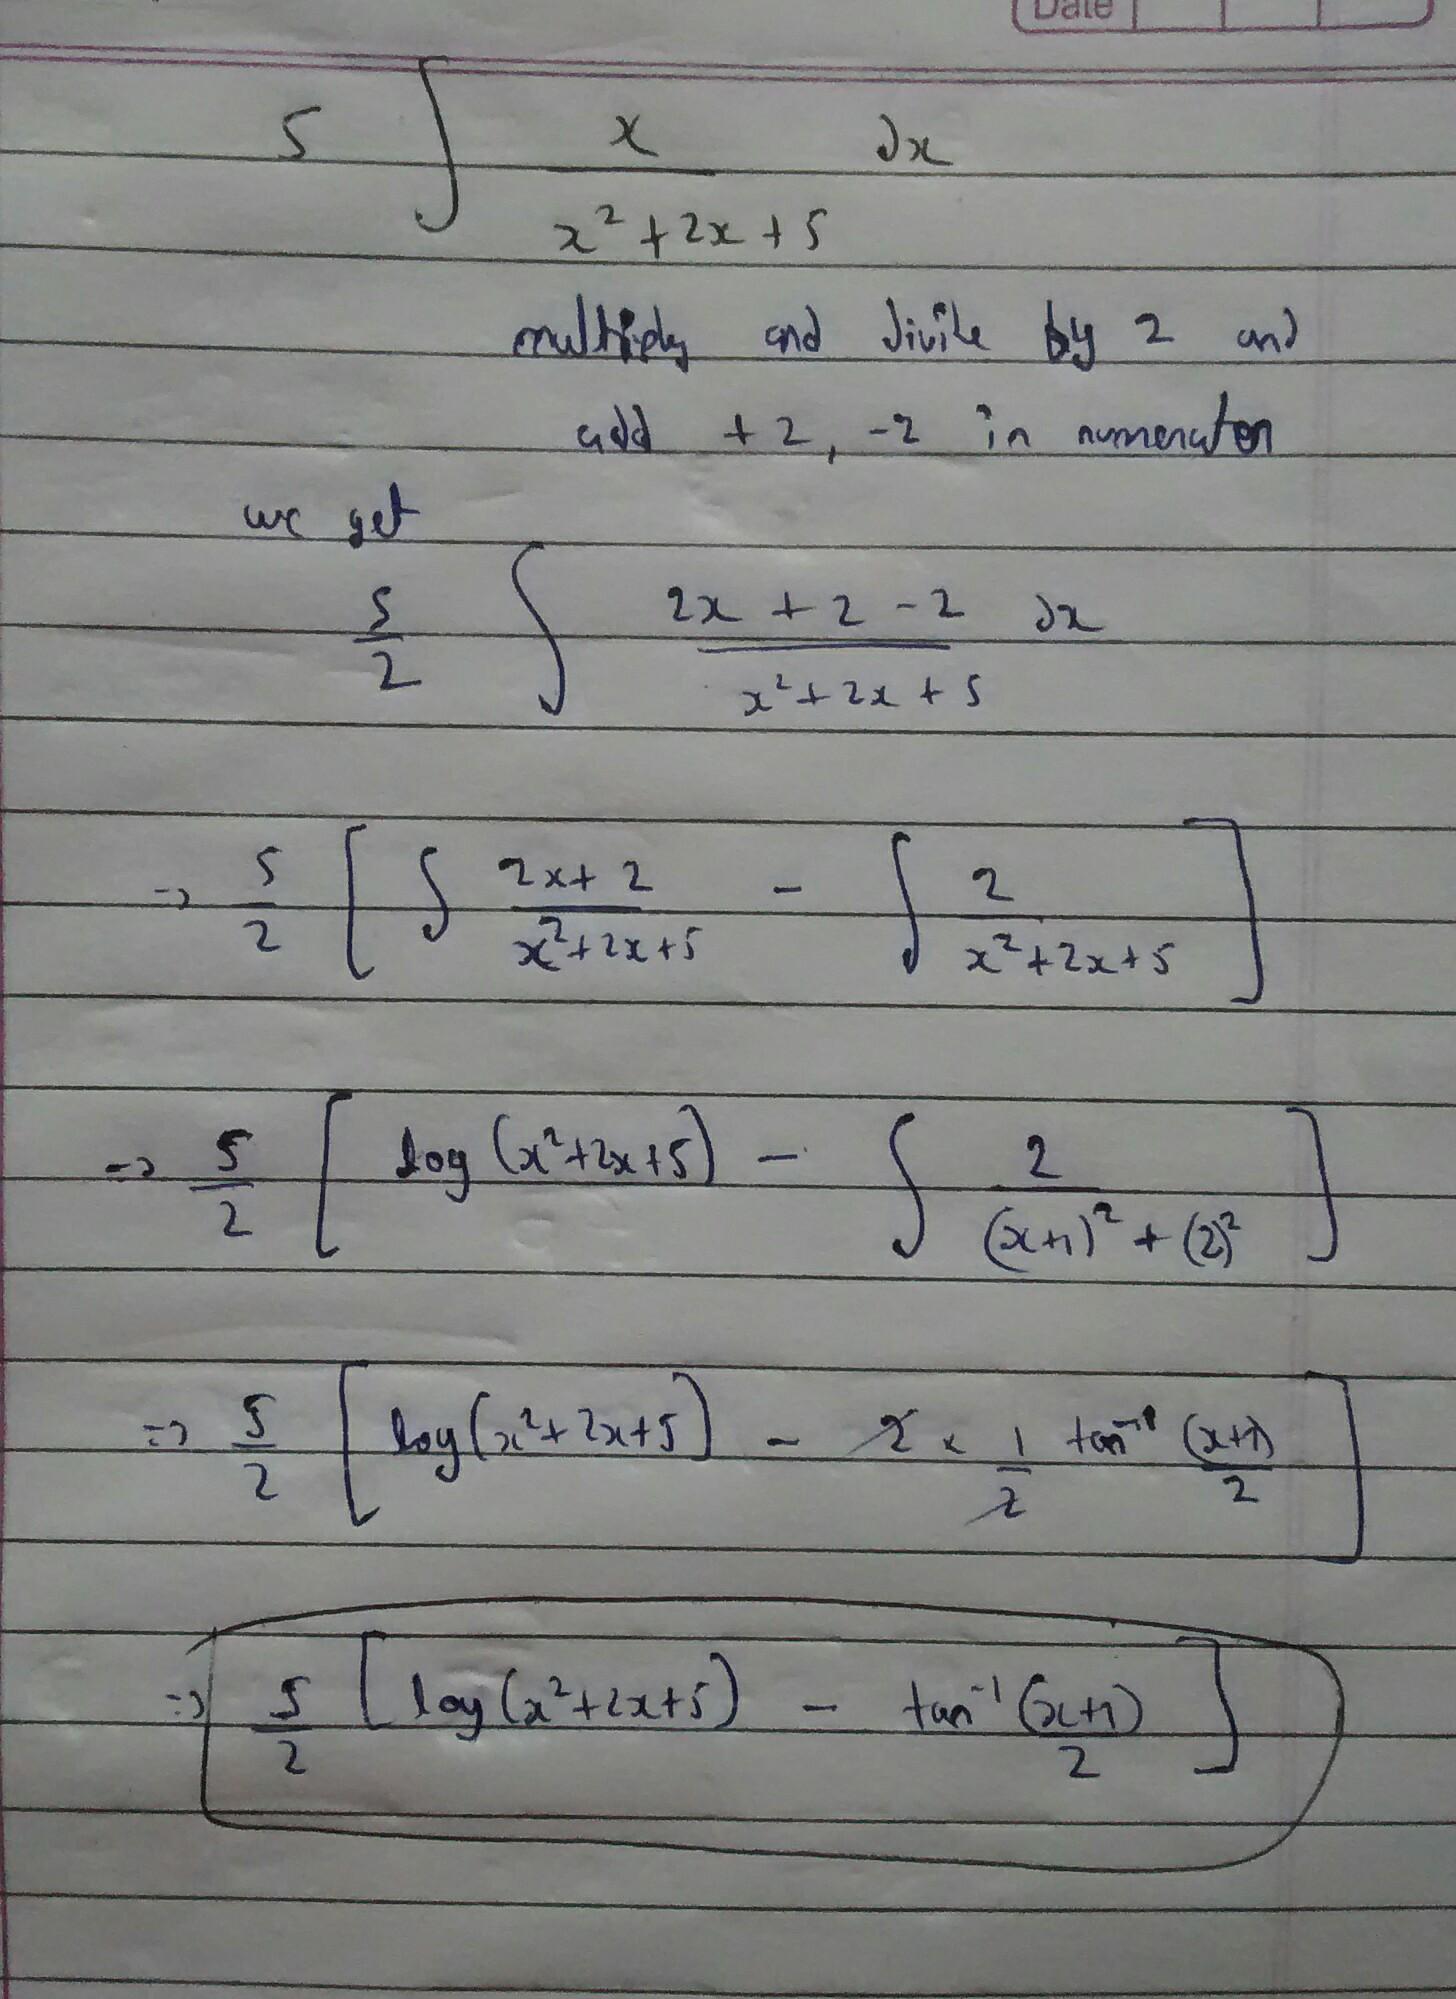 Date
5 ∫ x/(x²+2x+5) dx
multiply and divide by 2 and
add +2, -2 in numerator
we get
5/2 ∫ (2x+2-2)/(x²+2x+5) dx
=> 5/2 [ ∫ (2x+2)/(x²+2x+5) - ∫ 2/(x²+2x+5) ]
=> 5/2 [ log(x²+2x+5) - ∫ 2/((x+1)²+(2)²) ]
=> 5/2 [ log(x²+2x+5) - 2 × 1/2 tan⁻¹ (x+1)/2 ]
=> 5/2 [ log(x²+2x+5) - tan⁻¹ (x+1)/2 ]